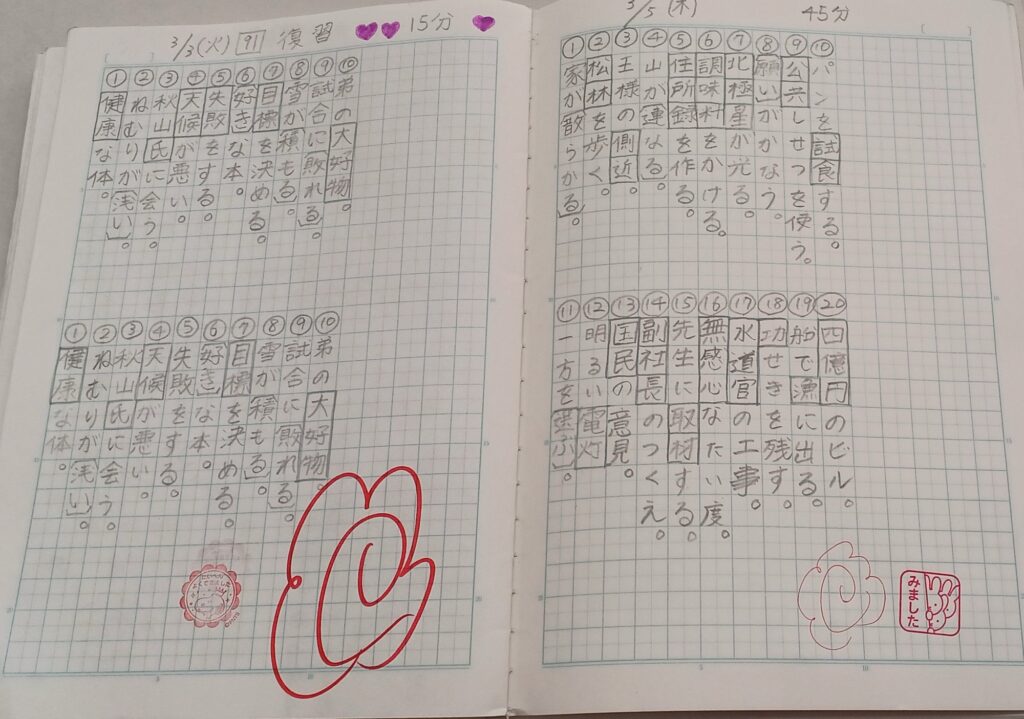 3/3(火) 91 復習 15分
①健康な体。
②ねむりが浅い。
③秋山氏に会う。
④天候が悪い。
⑤失敗をする。
⑥好きな本。
⑦目標を決める。
⑧雪が積もる。
⑨試合に敗れる。
⑩弟の大好物。
①健康な体。
②ねむりが浅い。
③秋山氏に会う。
④天候が悪い。
⑤失敗をする。
⑥好きな本。
⑦目標を決める。
⑧雪が積もる。
⑨試合に敗れる。
⑩弟の大好物。
3/5(木) 45分
①家が散らかる。
②松林を歩く。
③王様の側近。
④山が連なる。
⑤住所録を作る。
⑥調味料をかける。
⑦北極星が光る。
⑧願いがかなう。
⑨公共しせつを使う。
⑩パンを試食する。
⑪一方を選ぶ。
⑫明るい電灯。
⑬国民の意見。
⑭副社長のつくえ。
⑮先生に取材する。
⑯無感心なたい度。
⑰水道官の工事。
⑱功せきを残す。
⑲船で漁に出る。
⑳四億円のビル。
みました